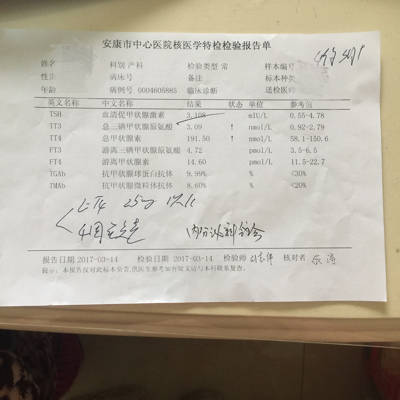 安康市中心医院核医学特检检验报告单
姓名 科别 产科 检验类型 常 样本编号
性别 病床号 备注 标本种类
年龄 病例号 0004605885 临床诊断 送检医师
英文名称 中文名称 结果 状态 单位 参考值
TSH 血清促甲状腺激素 3.108 mIU/L 0.55-4.78
TT3 总三碘甲状腺原氨酸 3.09 ↑ nmol/L 0.92-2.79
TT4 总甲状腺素 191.50 ↑ nmol/L 58.1-150.6
FT3 游离三碘甲状腺原氨酸 4.72 pmol/L 3.5-6.5
FT4 游离甲状腺素 14.60 pmol/L 11.5-22.7
TGAb 抗甲状腺球蛋白抗体 9.99% % <30%
TMAb 抗甲状腺微粒体抗体 8.60% % <20%
4周复查
内分泌科会诊
报告日期 2017-03-14 检验日期 2017-03-14 检验师 核对者
提示：本报告仅对此标本负责,供医生参考如有疑义请与本科联系复查。